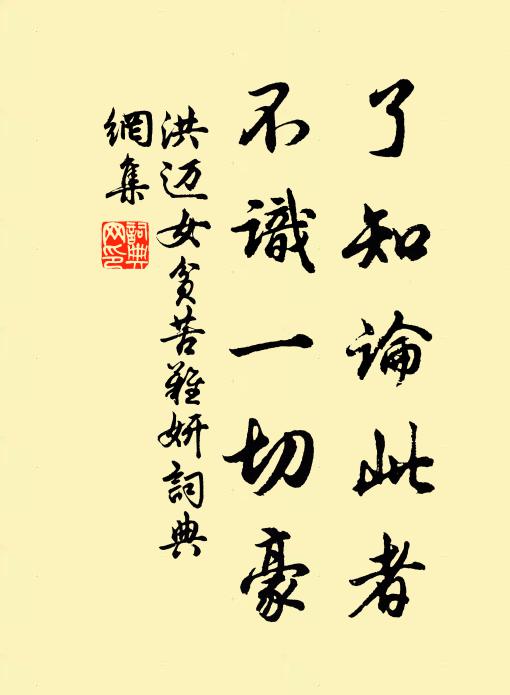 了知論此者
不識一切豪
洪迈女貧苦難妍詞典
網集
詞典
网印